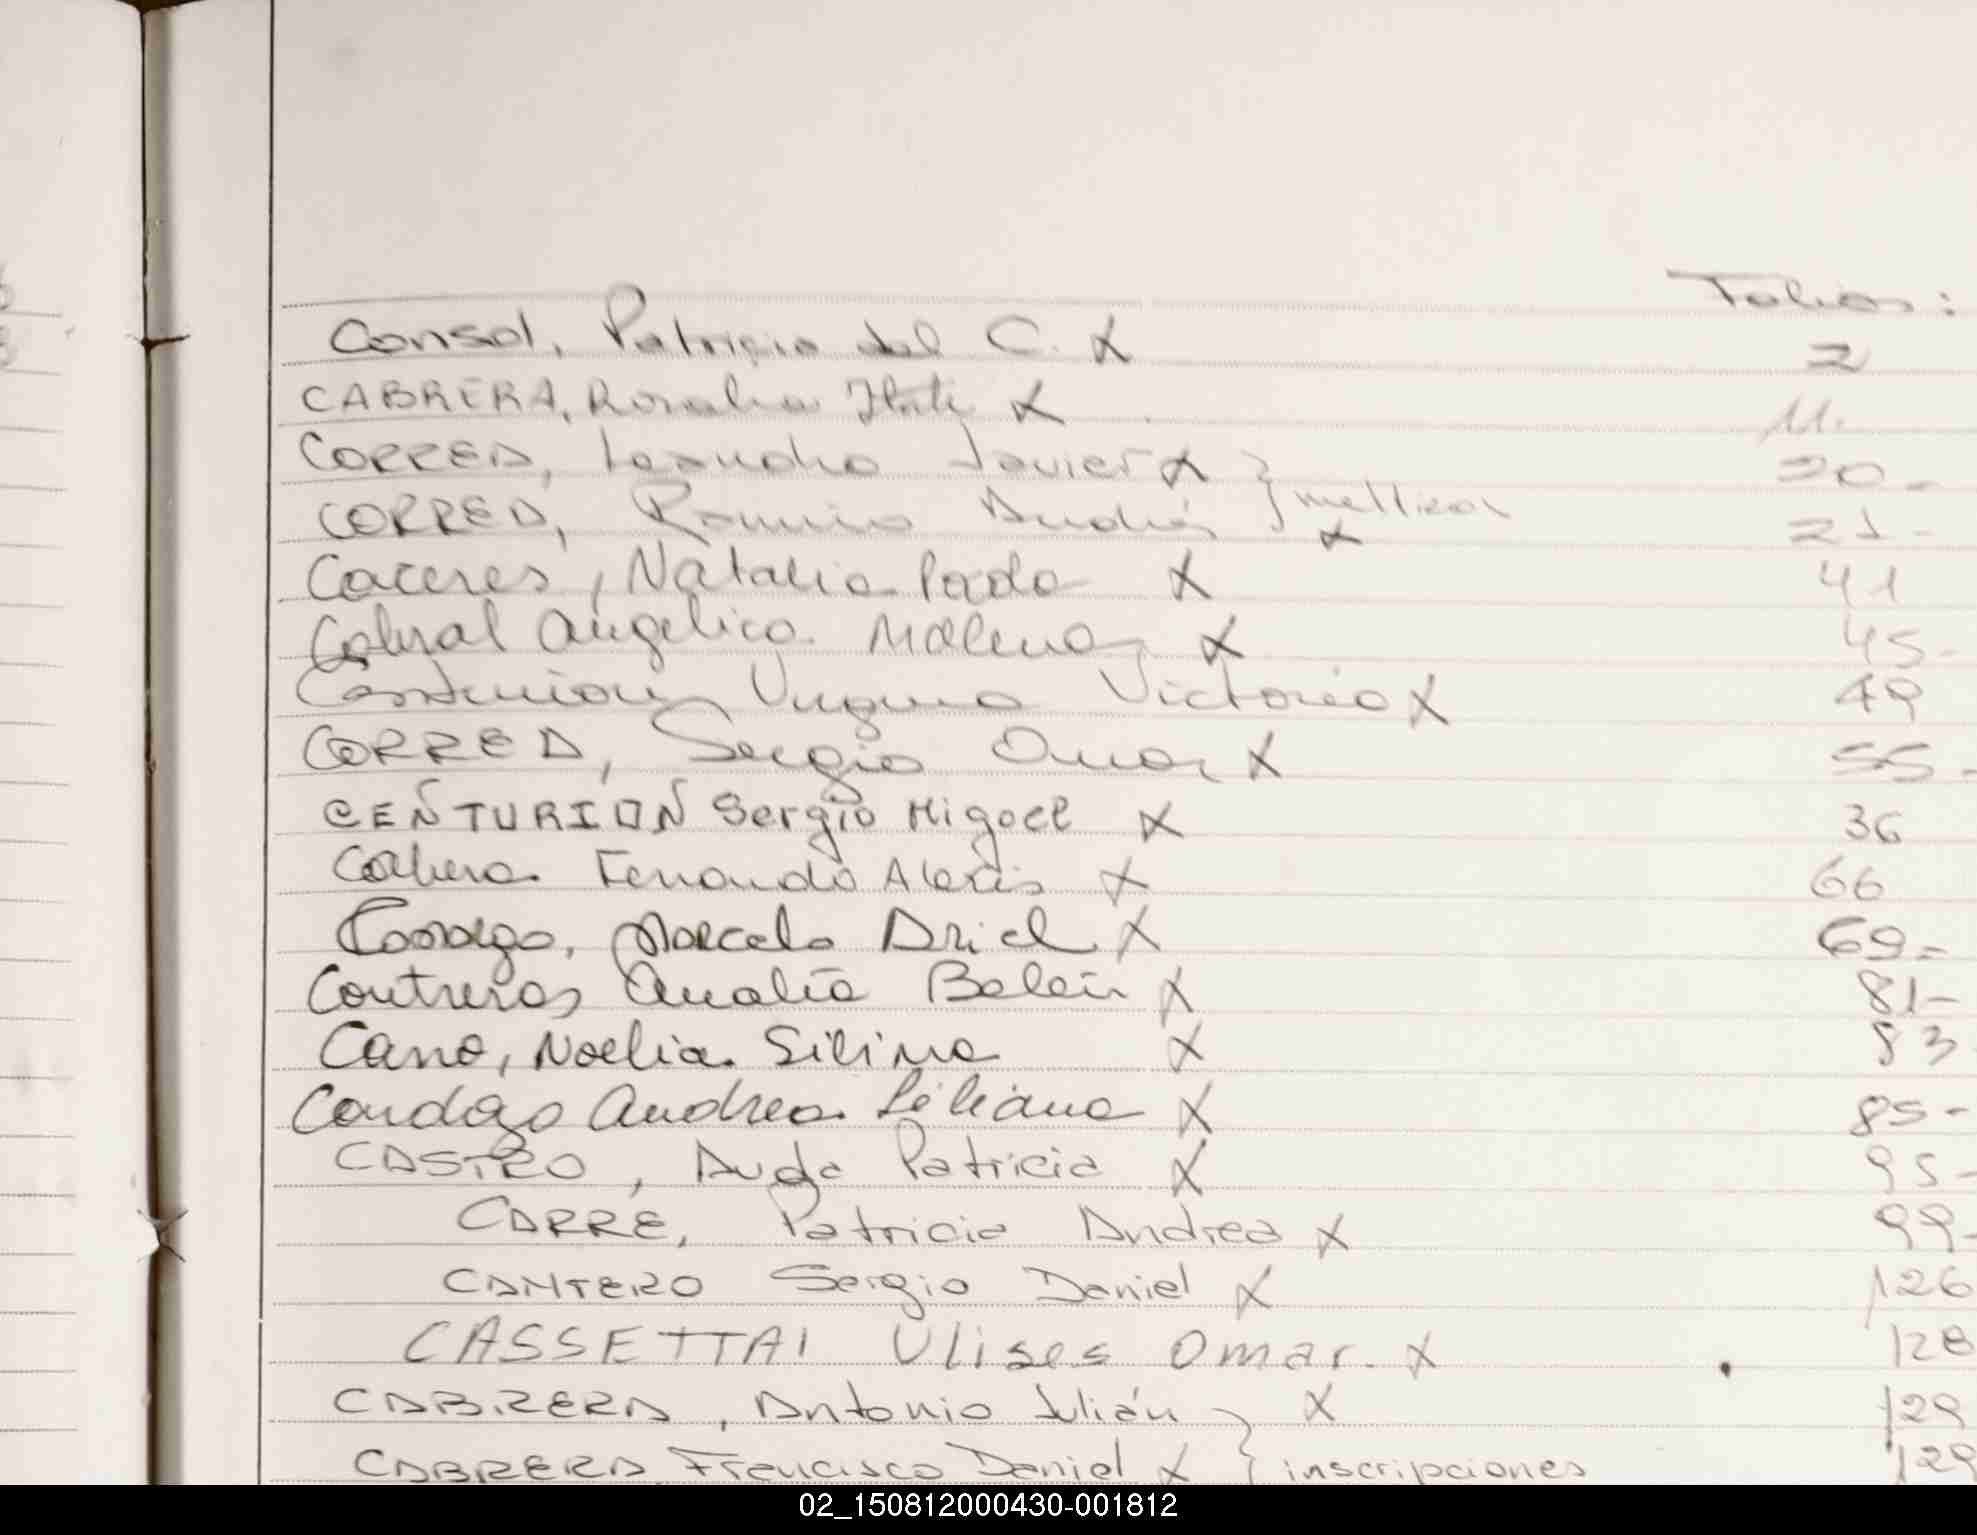 Folios:
Consol, Patricia del C. X 2
CABRERA, Rosalia Itati X 11.
CORREA, Leandro Javier X 20-
CORREA, Ramiro Andrés } mellizos X 21-
Caceres, Natalia Paola X 41
Cabral Angelica Malena X 45-
Centurion Victoria X 49
CORREA, Sergio Omar X 55-
CEÑTURIOÑ Sergio Migoel X 36
Cabrera Fernando Alexis X 66
Marcelo Ariel X 69-
Contreras Analía Belén X 81-
Cano, Noelia Silina X 83
Andrea Liliana X 85-
CASTRO, Patricia X 95-
CARRE, Patricia Andrea X 99-
CANTERO Sergio Daniel X 126
CASSETTAI Ulises Omar. X 128
CABRERA, Antonio Julián } X 129
CABRERA Francisco Daniel X } inscripciones 129
02_150812000430-001812